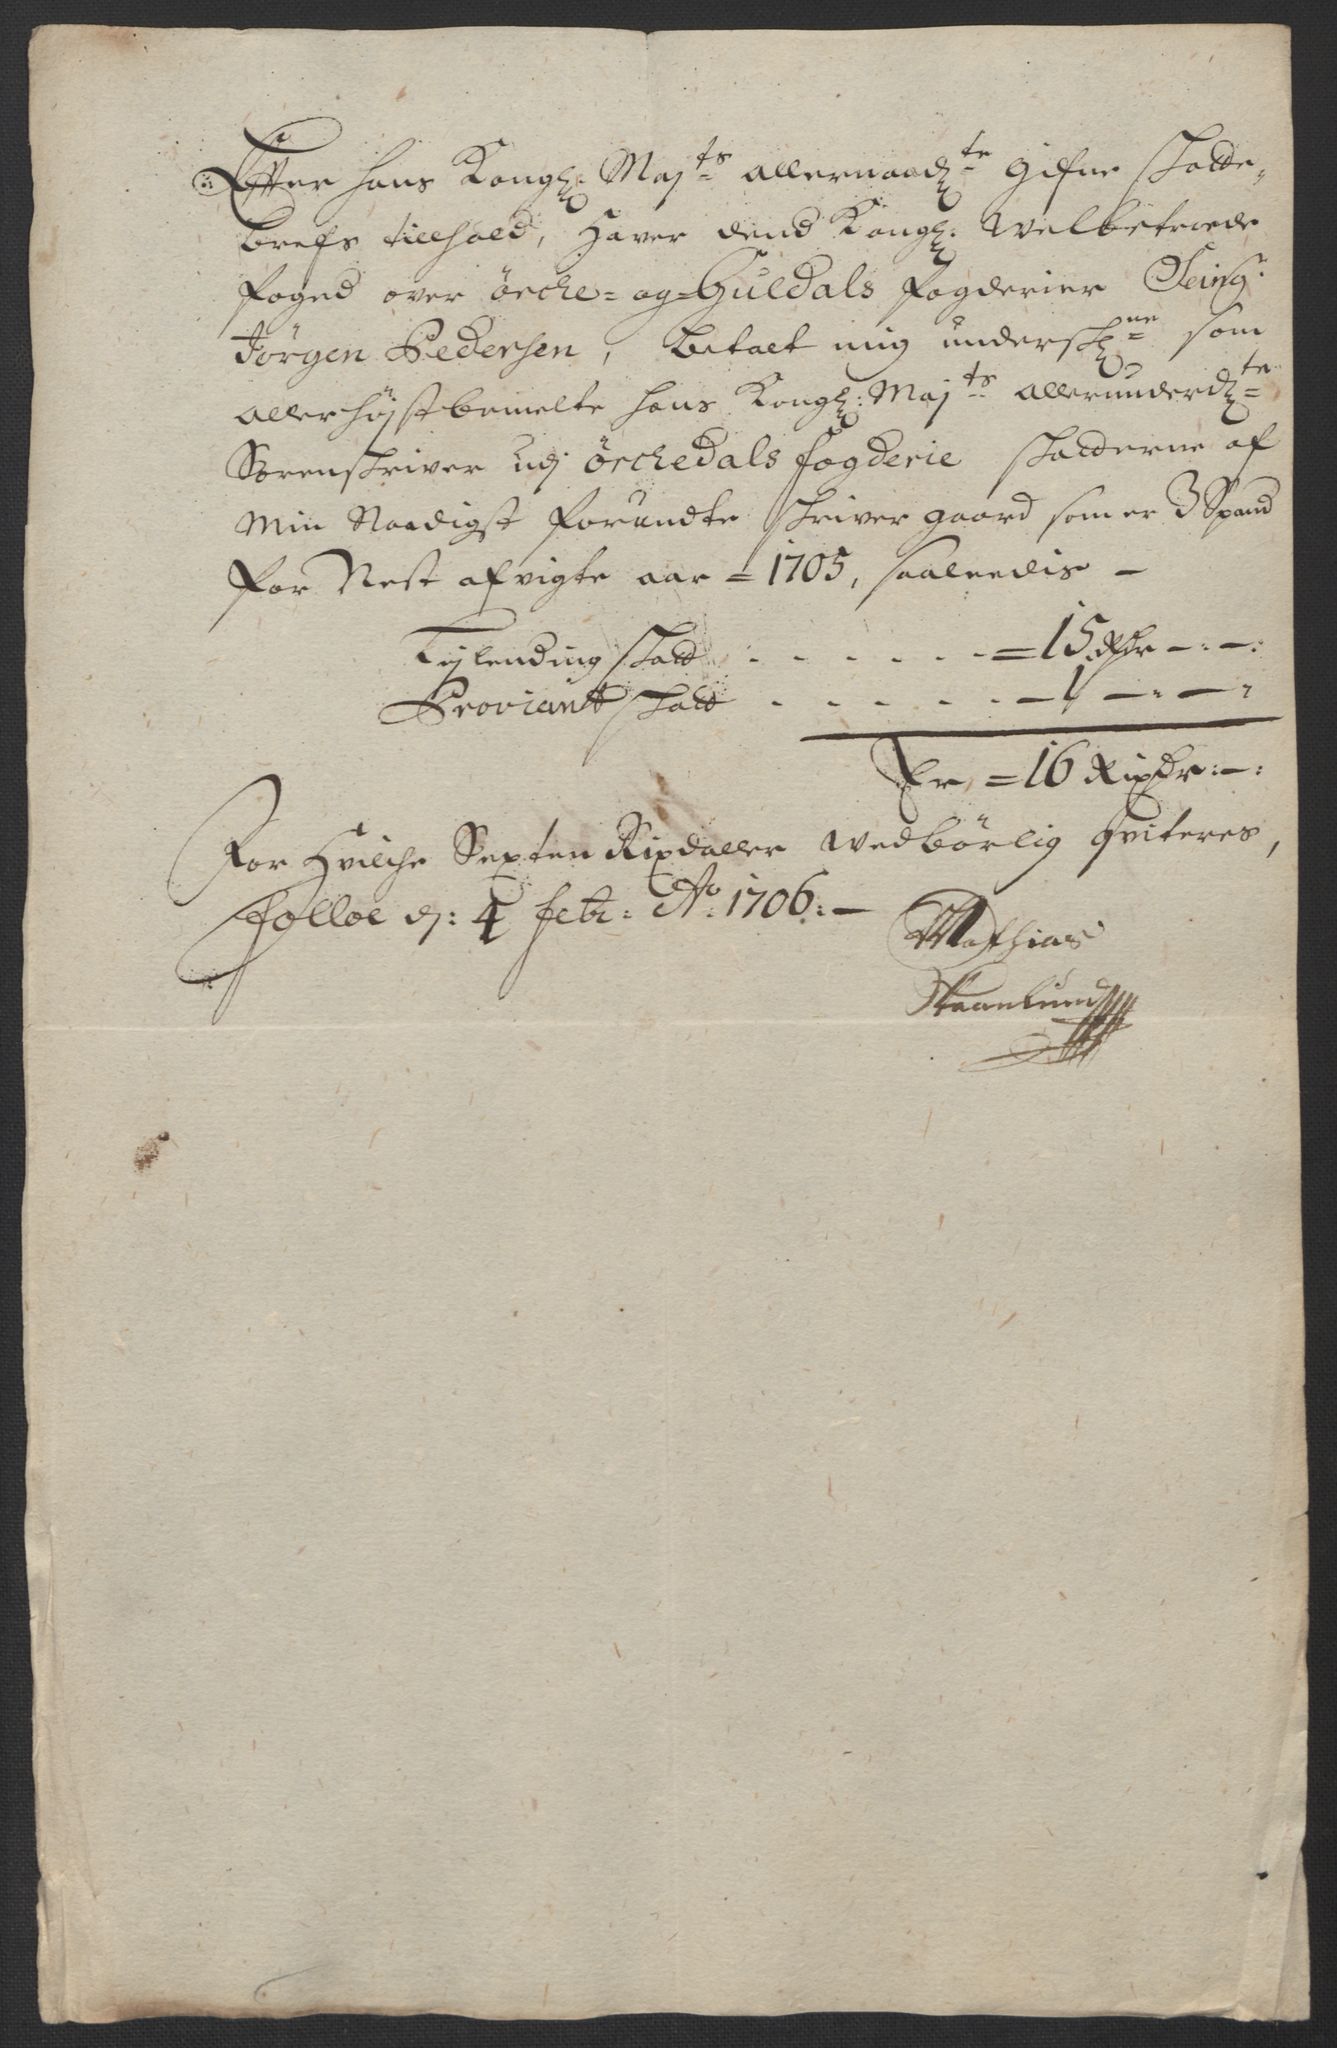 Effter hans Kongl: Maj:ts allernaad:te Gifne skatte-
brefs tilhold, Haver dend Kongl: Welbetroede
foged over örche- og Guldals fogderier Seing:r
Jörgen Pedersen, betalt mig undersch:ne som
allerhöjstbemelte hans Kongl: Maj:ts allerunderd:te
Sorenskriver udj örchedals fogderie skatterne af
Min Naadigst forundte skriver gaard som er 3 Spand
for Nest afvigte aar = 1705, saaledis -
Lejlending skatt . . . . . . = 15 Rdr -:-:
Proviant skatt . . . . . . - 1 -:-:
Er = 16 Rixdr:-:
For Hvilche Sexten Rixdaller vedbörlig qviteres,
folloe d: 4 febr: Ao: 1706:-
Mathias
Skaanlund